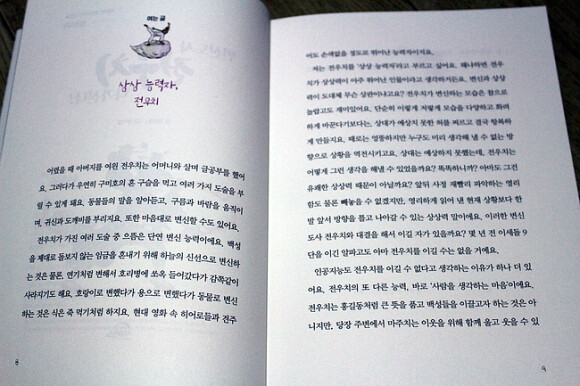 여는 글
상상 능력자,
전우치
어렸을 때 아버지를 여읜 전우치는 어머니와 살며 글공부를 했어
요. 그러다가 우연히 구미호의 혼 구슬을 먹고 여러 가지 도술을 부
릴 수 있게 돼요. 동물들의 말을 알아듣고, 구름과 바람을 움직이
며, 귀신과 도깨비를 부리지요. 또한 마음대로 변신할 수도 있어요.
전우치가 가진 여러 도술 중 으뜸은 단연 변신 능력이에요. 백성
을 제대로 돌보지 않는 임금을 혼내기 위해 하늘의 신선으로 변신하
는 것은 물론, 연기처럼 변해서 호리병에 쏘옥 들어갔다가 감쪽같이
사라지기도 해요. 호랑이로 변했다가 용으로 변했다가 동물로 변신
하는 것은 식은 죽 먹기처럼 하지요. 현대 영화 속 히어로들과 견주
8
어도 손색없을 정도로 뛰어난 능력자이지요.
저는 전우치를 '상상 능력자'라고 부르고 싶어요. 왜냐하면 전우
치가 상상력이 아주 뛰어난 인물이라고 생각하거든요. 변신과 상상
력이 도대체 무슨 상관이냐고요? 전우치가 변신하는 모습은 참으로
놀랍고도 재미있어요. 단순히 이렇게 저렇게 모습을 다양하고 화려
하게 바꾼다기보다는, 상대가 예상치 못한 허를 찌르고 결국 항복하
게 만들지요. 때로는 엉뚱하지만 누구도 미리 생각해 낼 수 없는 방
향으로 상황을 역전시키고요. 상대는 예상하지 못했는데, 전우치는
어떻게 그런 생각을 해낼 수 있었을까요? 똑똑하니까? 아마도 그건
유쾌한 상상력 때문이 아닐까요? 앞뒤 사정 재빨리 파악하는 영리
함도 물론 빼놓을 수 없겠지만, 영리하게 읽어 낸 현재 상황보다 한
발 앞서 방향을 틀고 나아갈 수 있는 상상력 말이에요. 이러한 변신
도사 전우치와 대결을 해서 이길 자가 있을까요? 몇 년 전 이세돌 9
단을 이긴 알파고도 아마 전우치를 이길 수는 없을 거예요.
인공지능도 전우치를 이길 수 없다고 생각하는 이유가 하나 더 있
어요. 전우치의 또 다른 능력, 바로 '사람을 생각하는 마음'이에요.
전우치는 홍길동처럼 큰 뜻을 품고 백성들을 이끌고자 하는 것은 아
니지만, 당장 주변에서 마주치는 이웃을 위해 함께 울고 웃을 수 있
9